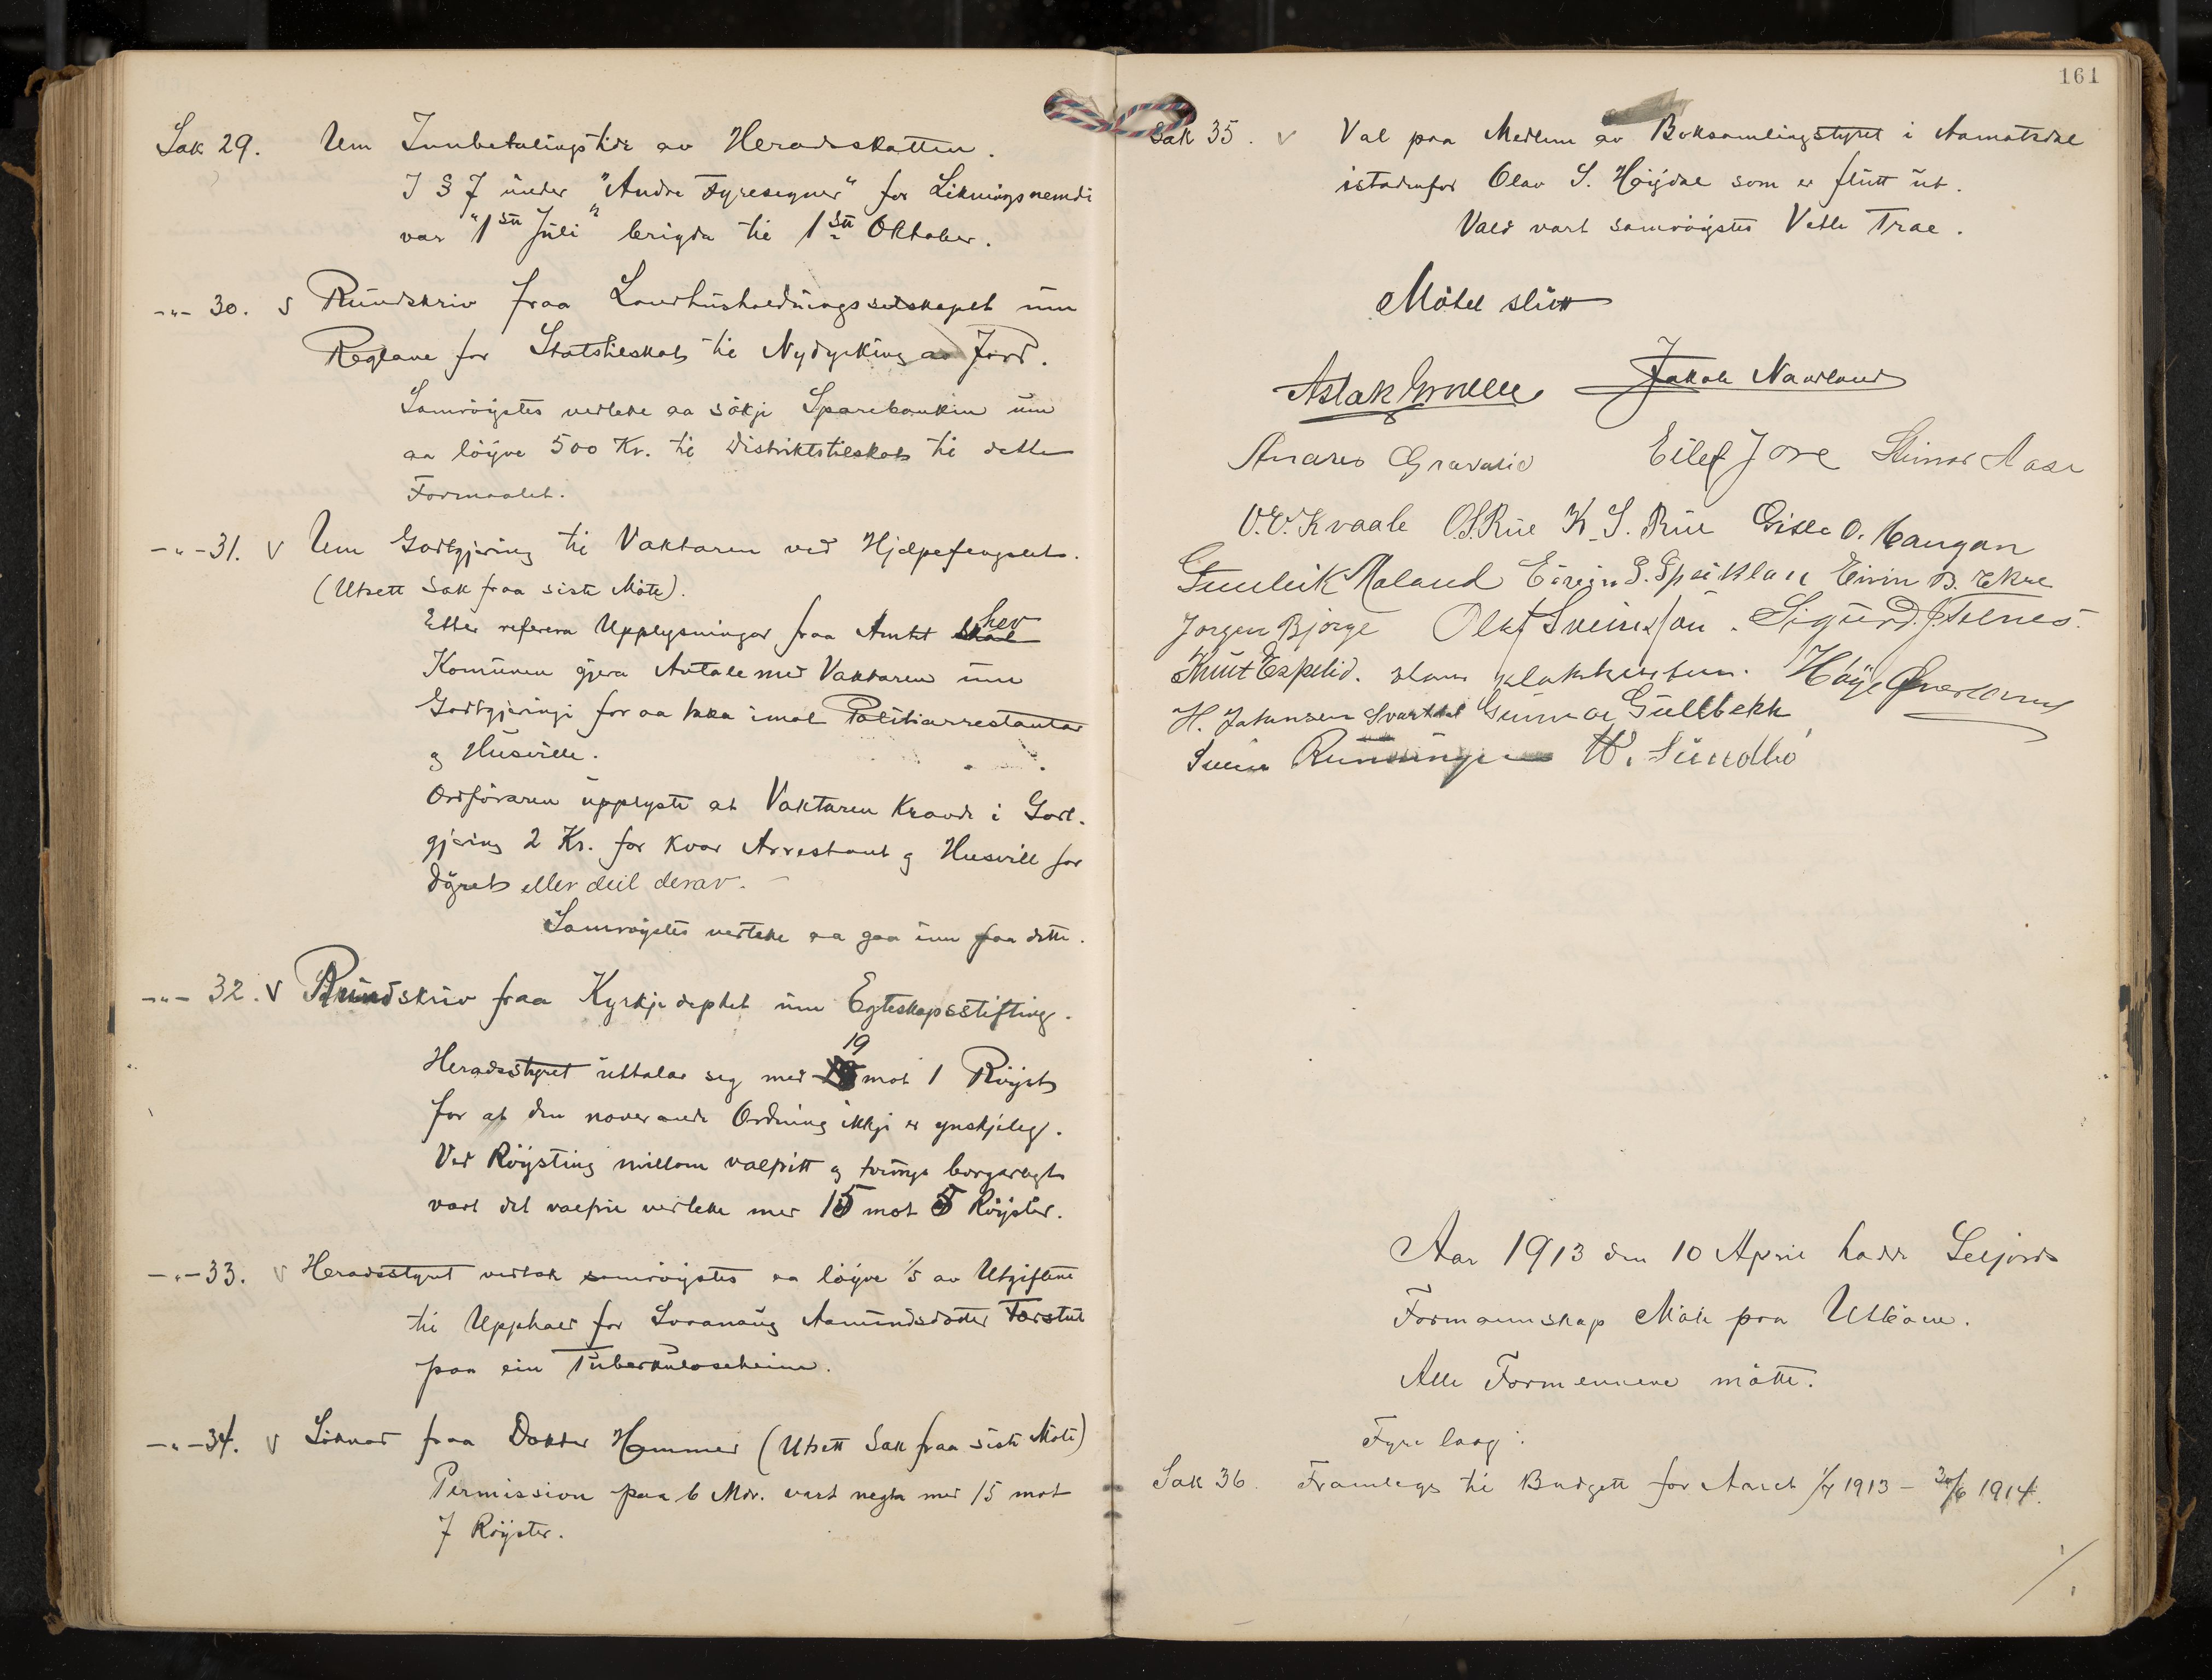 Sak 29. Um Innbetalingstidi av Heradsskatten.
I § 7 under "Andre Fyresegner" for Likningsnemdi
var "1ste Juli" brigda til 1ste Oktober.
-"- 30. v Rundskriv fraa Landhusholdningsselskapet um
Reglane for Statstilskot til Nydyrking av Jord.
Samrøystes vedteke aa søkje Sparebanken um
aa løyve 500 Kr. til Distriktstilskot til dette
Formaalet.
-"- 31. v Um Godtgjering til Vaktaren ved Hjelpefengslet.
(Utsett Sak fraa siste Møte).
Etter referera Upplysningar fraa Amtet skal hev
Komunen gjera Avtale med Vaktaren um
Godtgjeringi for aa taka imot Politiarrestantar
og Husville.
Ordføraren upplyste at Vaktaren kravde i Godt-
gjering 2 Kr. for kvar Arrestant og Husvill for
Døgret eller deil derav.
Samrøystes vedteke aa gaa inn paa dette.
-"- 32. v Rundskriv fraa Kyrkjedeptet um Egteskapsstifting.
Heradsstyret uttalar seg med 19 mot 1 Røyst
for at den noverande Ordning ikkje er ynskjeleg.
Ved Røysting millom valfritt og tvunge borgarlegt
vart det valfrie vedteke med 15 mot 5 Røyster.
-"- 33. v Heradsstyret vedtok samrøystes aa løyve 1/5 av Utgiftene
til Upphald for Svanaug Aamundsdotter Torstul
paa ein Tuberkuloseheim.
-"- 34. v Søknad fraa Doktor Hammer (Utsett Sak fraa siste Møte)
Permission paa 6 Mdr. vart negta med 15 mot
7 Røyster.
161
Sak 35. v Val paa Medlem av Boksamlingstyret i Aamotsdal
istadenfor Olav S. Høgdal som er flutt ut.
Vald vart samrøystes Vetle Trae.
Møtet slutt
Aslak Grovum Jakob Naadland
Anders Gravalid Eilef Jore Steinar Aase
V. V. Kvaale O. S. Rue K. S. Rue Gisle O. Haugan
Gunleik Moland S. Speiklan Eivin B. Ekre
Jorgen Bjørge Olaf Sveinsson. Sigurd J. Telnes.
Knut Espelid. Høye
H. Johansen Svartdal Gunnar Gullbekk
Svein W. Sundbö
Aar 1913 den 10 April hadde Seljord
Formannskap Møte paa Utbøen.
Alle Formennene møtte.
Fyre laag:
Sak 36. Framlegg til Budgett for Aaret 1/7 1913 - 30/6 1914.